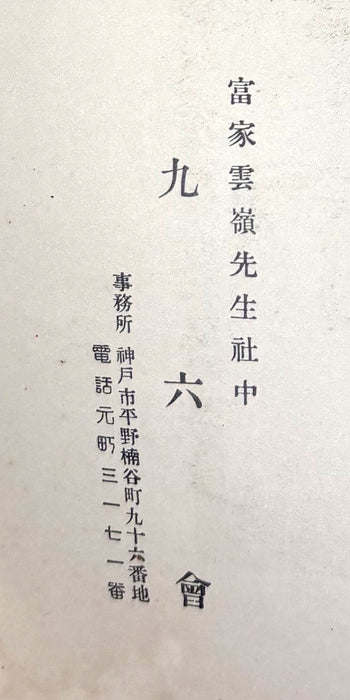 富家雲嶺先生社中
九六會
事務所 神戸市平野楠谷町九十六番地
電話元町三一七一番